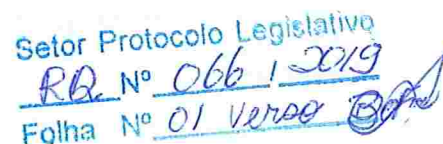 Setor Protocolo Legislativo
RQ Nº 066 / 2019
Folha Nº 01 Verso